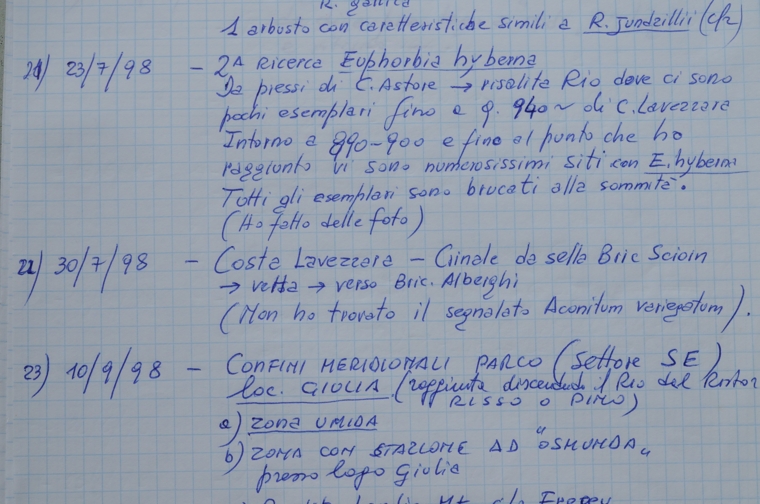 R. gallica
1 arbusto con caratteristiche simili a R. jundzillii (c/r)
21) 23/7/98 - 2ª Ricerca Euphorbia hyberna
Da pressi di C. Astore → risalita Rio dove ci sono
pochi esemplari fino a q. 940 ~ di C. Lavezzara
Intorno a 890-900 e fino al punto che ho
raggiunto vi sono numerosissimi siti con E. hyberna
Tutti gli esemplari sono brucati alla sommità.
(Ho fatto delle foto)
22) 30/7/98 - Costa Lavezzara - Crinale da sella Bric Scioin
→ vetta → verso Bric. Alberghi
(Non ho trovato il segnalato Aconitum variegatum).
23) 10/9/98 - CONFINI MERIDIONALI PARCO (Settore SE)
loc. GIULIA (raggiunta discendendo il Rio del
RISSO O PINO)
a) ZONA UMIDA
b) ZONA CON STAZIONE AD "OSMUNDA"
presso lago Giulia